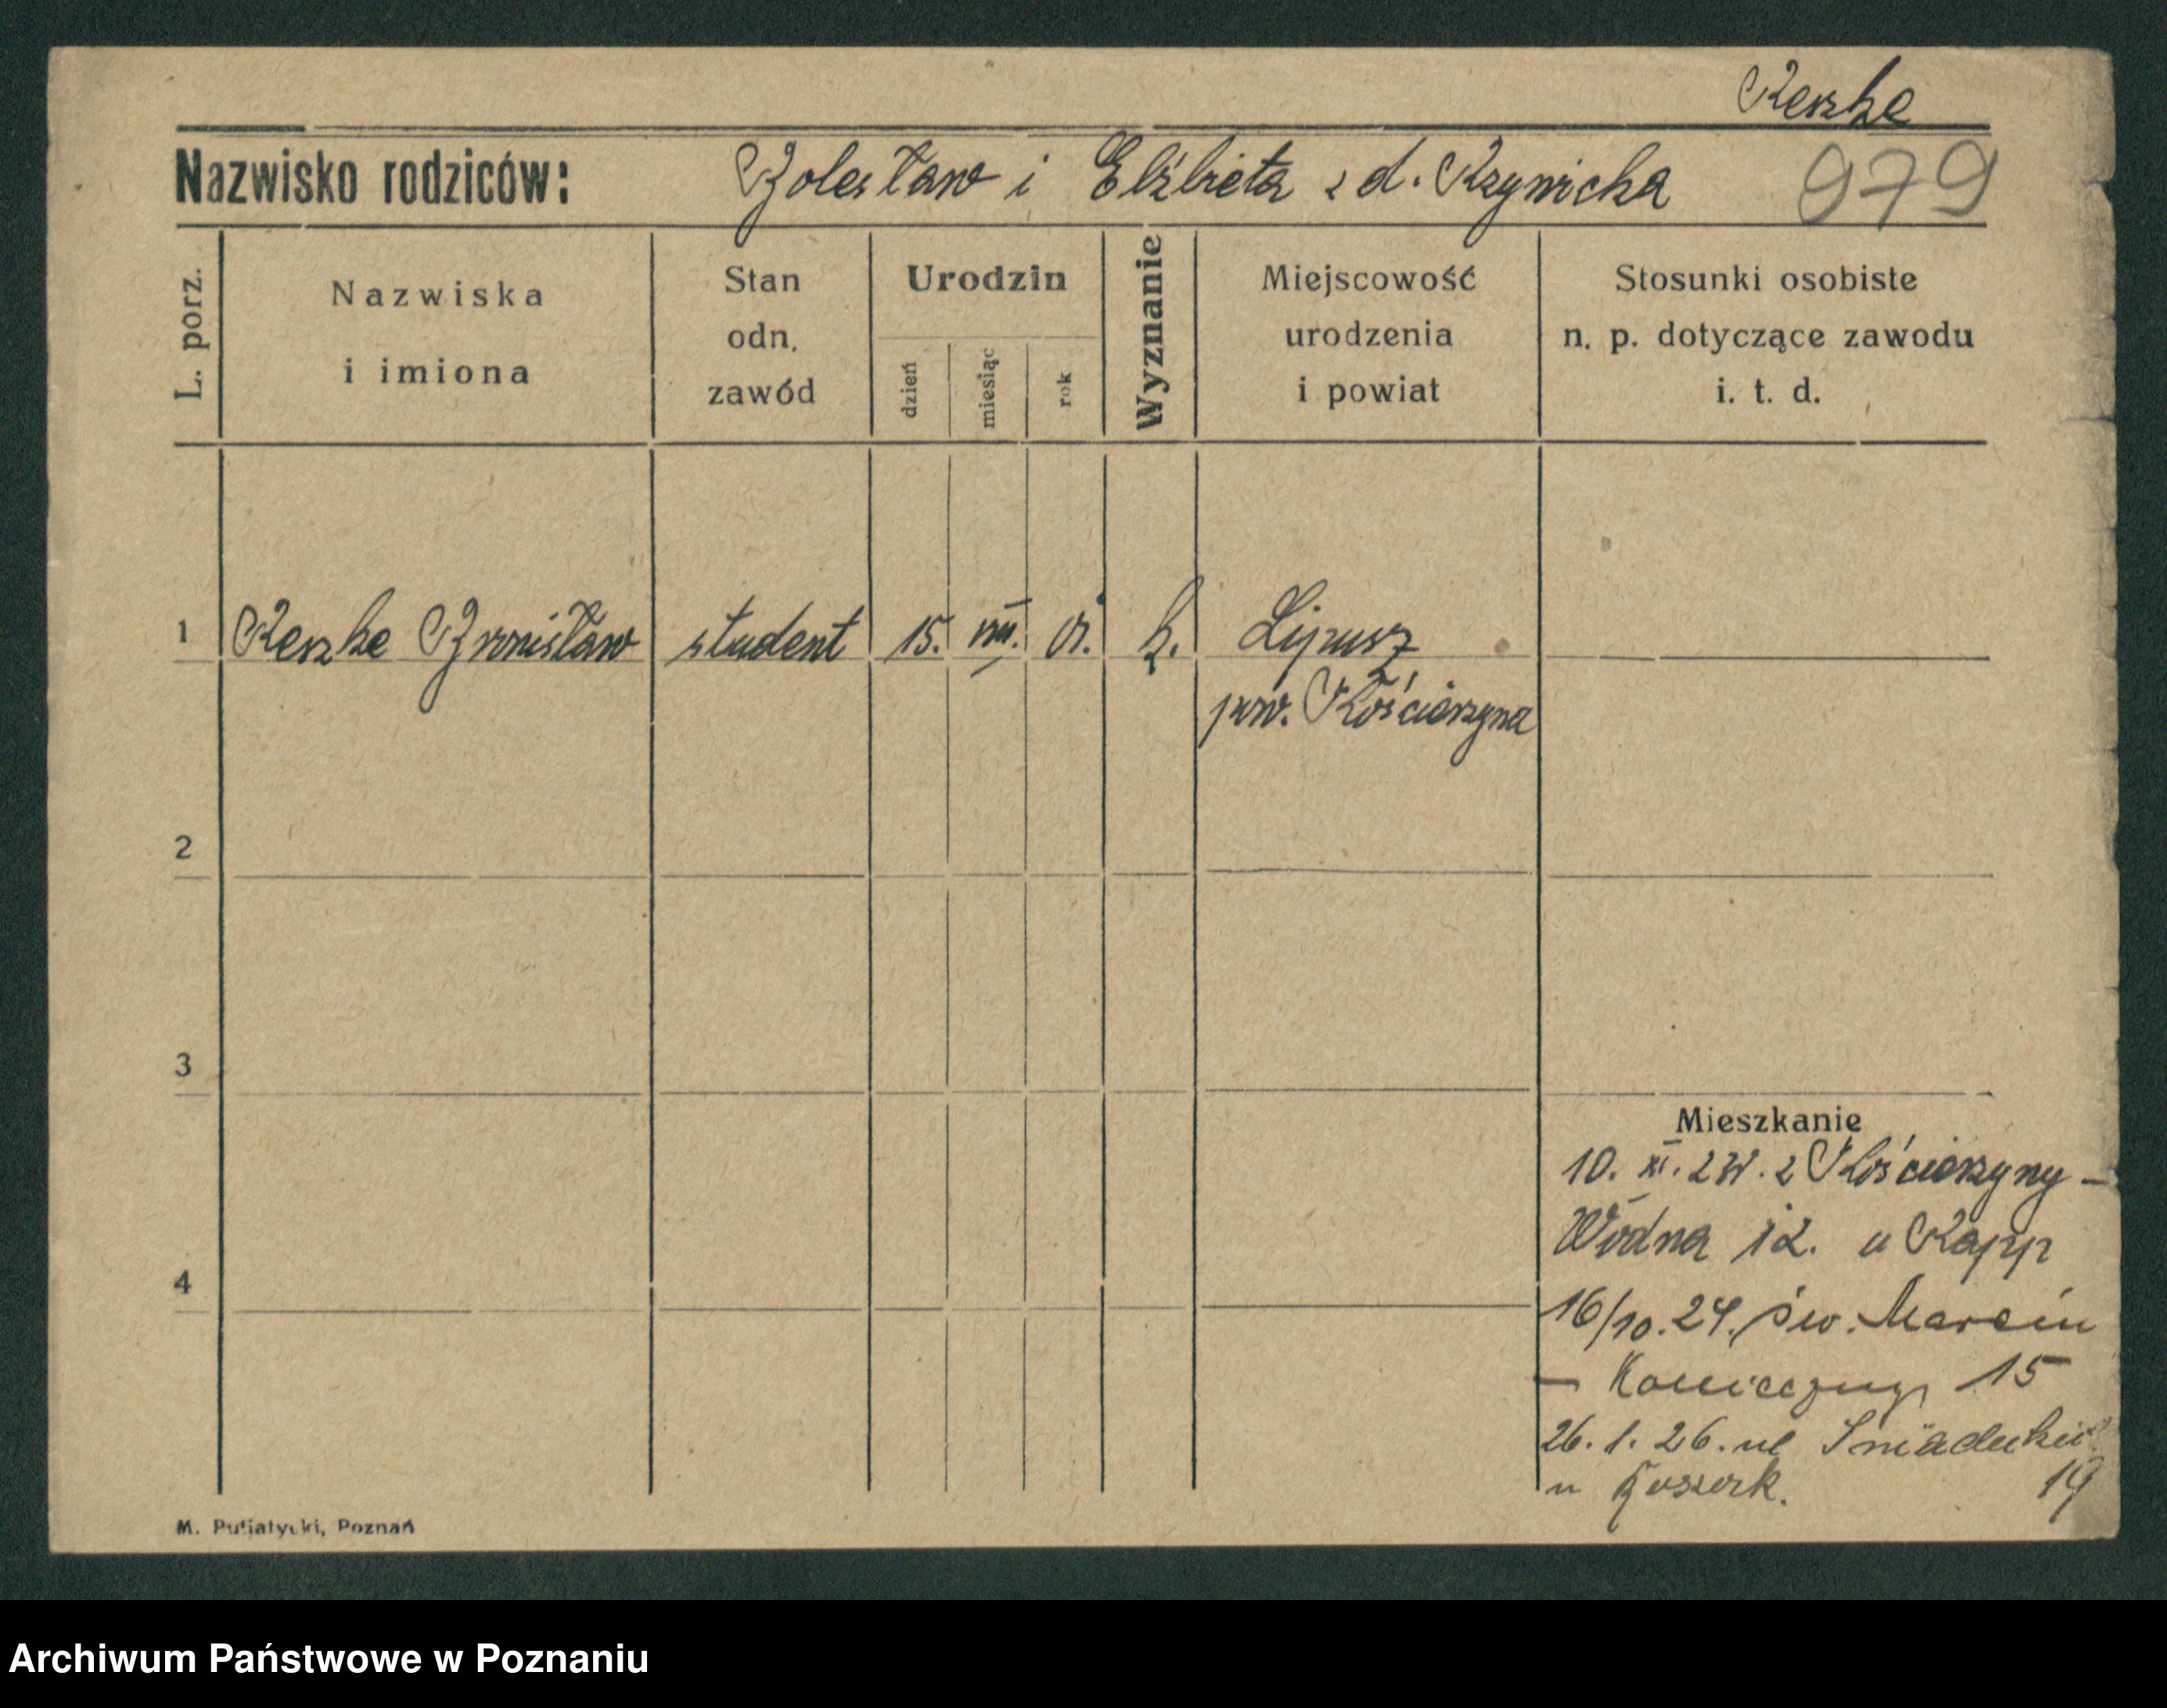 Reszke
Nazwisko rodziców: Bolesław i Elżbieta z d. Krzywicka 979
L. porz.
Nazwiska i imiona
Stan odn. zawód
Urodzin
dzień miesiąc rok
Wyznanie
Miejscowość urodzenia i powiat
Stosunki osobiste n. p. dotyczące zawodu i. t. d.
1 Reszke Bronisław student 15. VIII. 01. k. Lipusz
pow. Kościerzyna
2
3
Mieszkanie
10. XI. z Kościerzyny –
Wodna 12. u Rapp
4
16/10.24. św. Marcin
– 15
26. 1. 26. ul Śniadeckich
u 19
M. Putiatycki, Poznań
Archiwum Państwowe w Poznaniu